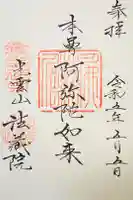 奉拝
令和五年五月五日
本尊 阿弥陀如来
法蔵院